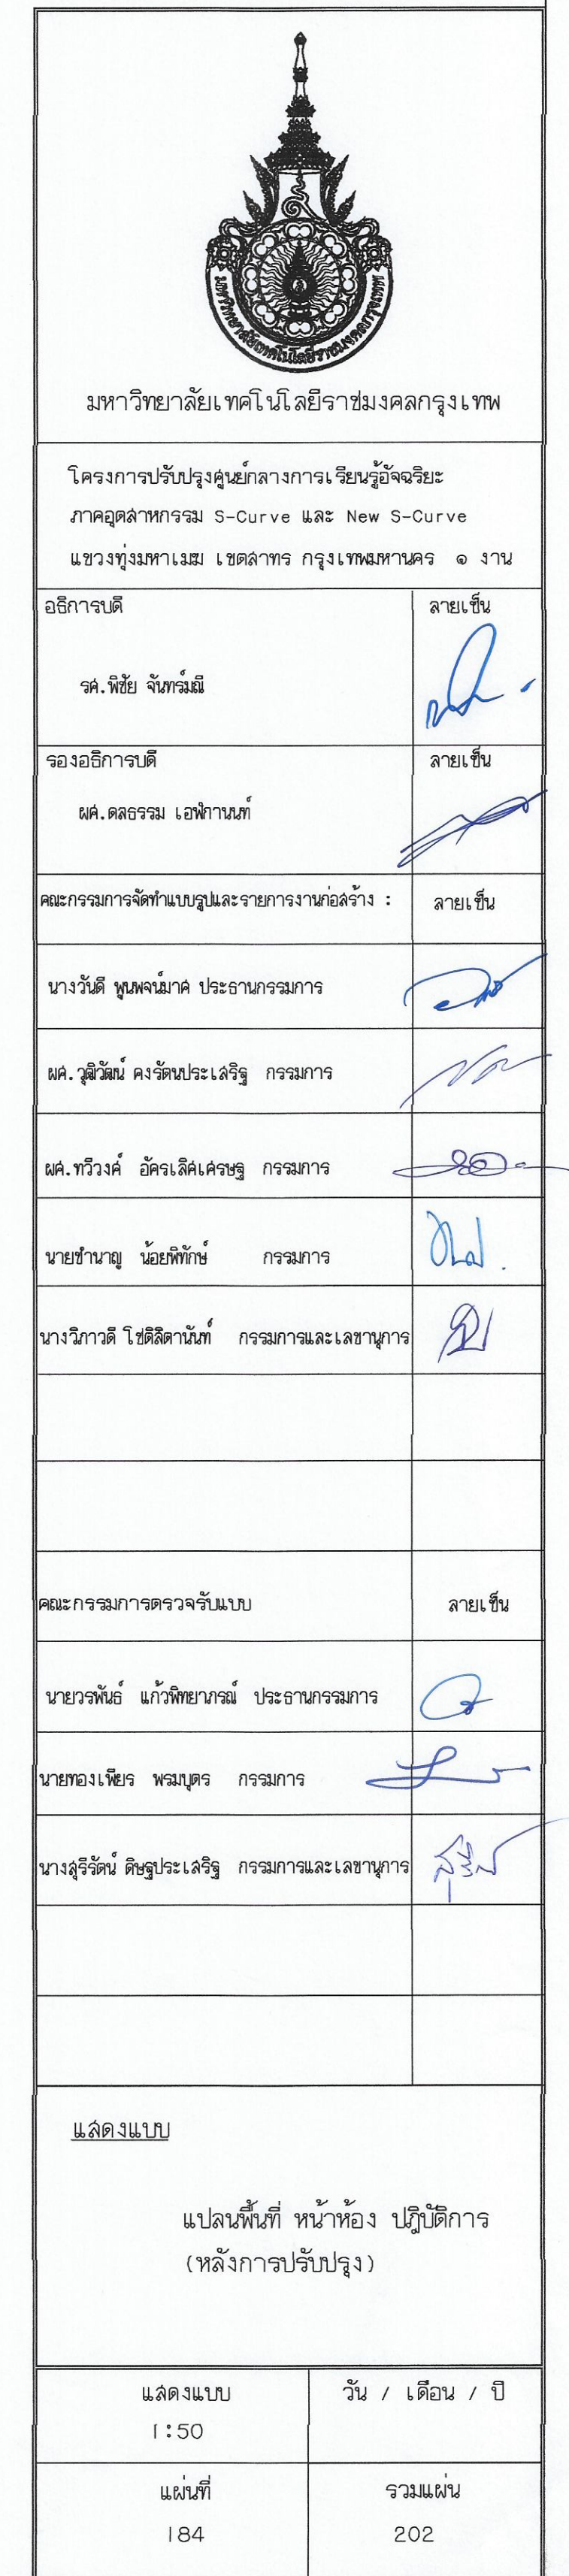 มหาวิทยาลัยเทคโนโลยีราชมงคลกรุงเทพ
มหาวิทยาลัยเทคโนโลยีราชมงคลกรุงเทพ
โครงการปรับปรุงศูนย์กลางการเรียนรู้อัจฉริยะ
ภาคอุตสาหกรรม S-Curve และ New S-Curve
แขวงทุ่งมหาเมฆ เขตสาทร กรุงเทพมหานคร ๑ งาน
อธิการบดี ลายเซ็น
รศ.พิชัย จันทร์มณี
รองอธิการบดี ลายเซ็น
ผศ.ดลธรรม เอฬกานนท์
คณะกรรมการจัดทำแบบรูปและรายการงานก่อสร้าง : ลายเซ็น
นางวันดี พูนพจน์มาศ ประธานกรรมการ
ผศ.วุฒิวัฒน์ คงรัตนประเสริฐ กรรมการ
ผศ.ทวีวงค์ อัครเลิศเศรษฐ กรรมการ
นายชำนาญ น้อยพิทักษ์ กรรมการ
นางวิภาวดี โชติลิตานันท์ กรรมการและเลขานุการ
คณะกรรมการตรวจรับแบบ ลายเซ็น
นายวรพันธ์ แก้วพิทยาภรณ์ ประธานกรรมการ
นายทองเพียร พรมบุตร กรรมการ
นางสุรีรัตน์ ดิษฐประเสริฐ กรรมการและเลขานุการ
แสดงแบบ
แปลนพื้นที่ หน้าห้อง ปฏิบัติการ
(หลังการปรับปรุง)
แสดงแบบ วัน / เดือน / ปี
1:50
แผ่นที่ รวมแผ่น
184 202